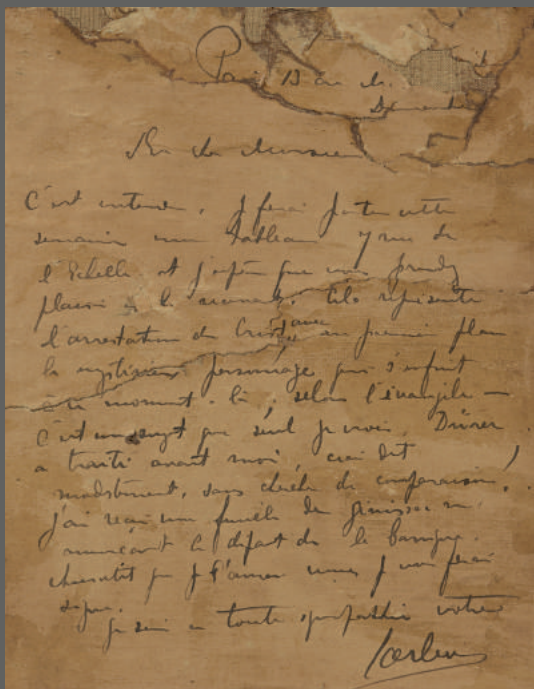 Paris 13
Dimanche
Mon cher Monsieur
C'est entendu, je ferai porter cette
semaine mon tableau 7 rue de
l'Echelle et j'espère que vous prendrez
plaisir à le Cela représente
l'arrestation du Christ avec au premier plan
le mystérieux personnage qui s'enfuit
à ce moment-là, selon l'évangile —
C'est un sujet que seul je crois, Dürer
a traité avant moi, ceci dit
modestement, sans chercher de comparaison!
J'ai reçu une feuille de
annonçant le départ de la barrique.
Aussitôt que je l'aurai je vous ferai
signe.
Je suis en toute sympathie votre